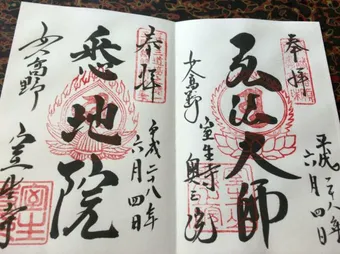 奉拝
弘法大師
女人高野
室生寺
奥之院
平成二八年
六月四日
奉拝
悉地院
女人高野
室生寺
平成二八年
六月四日
室生